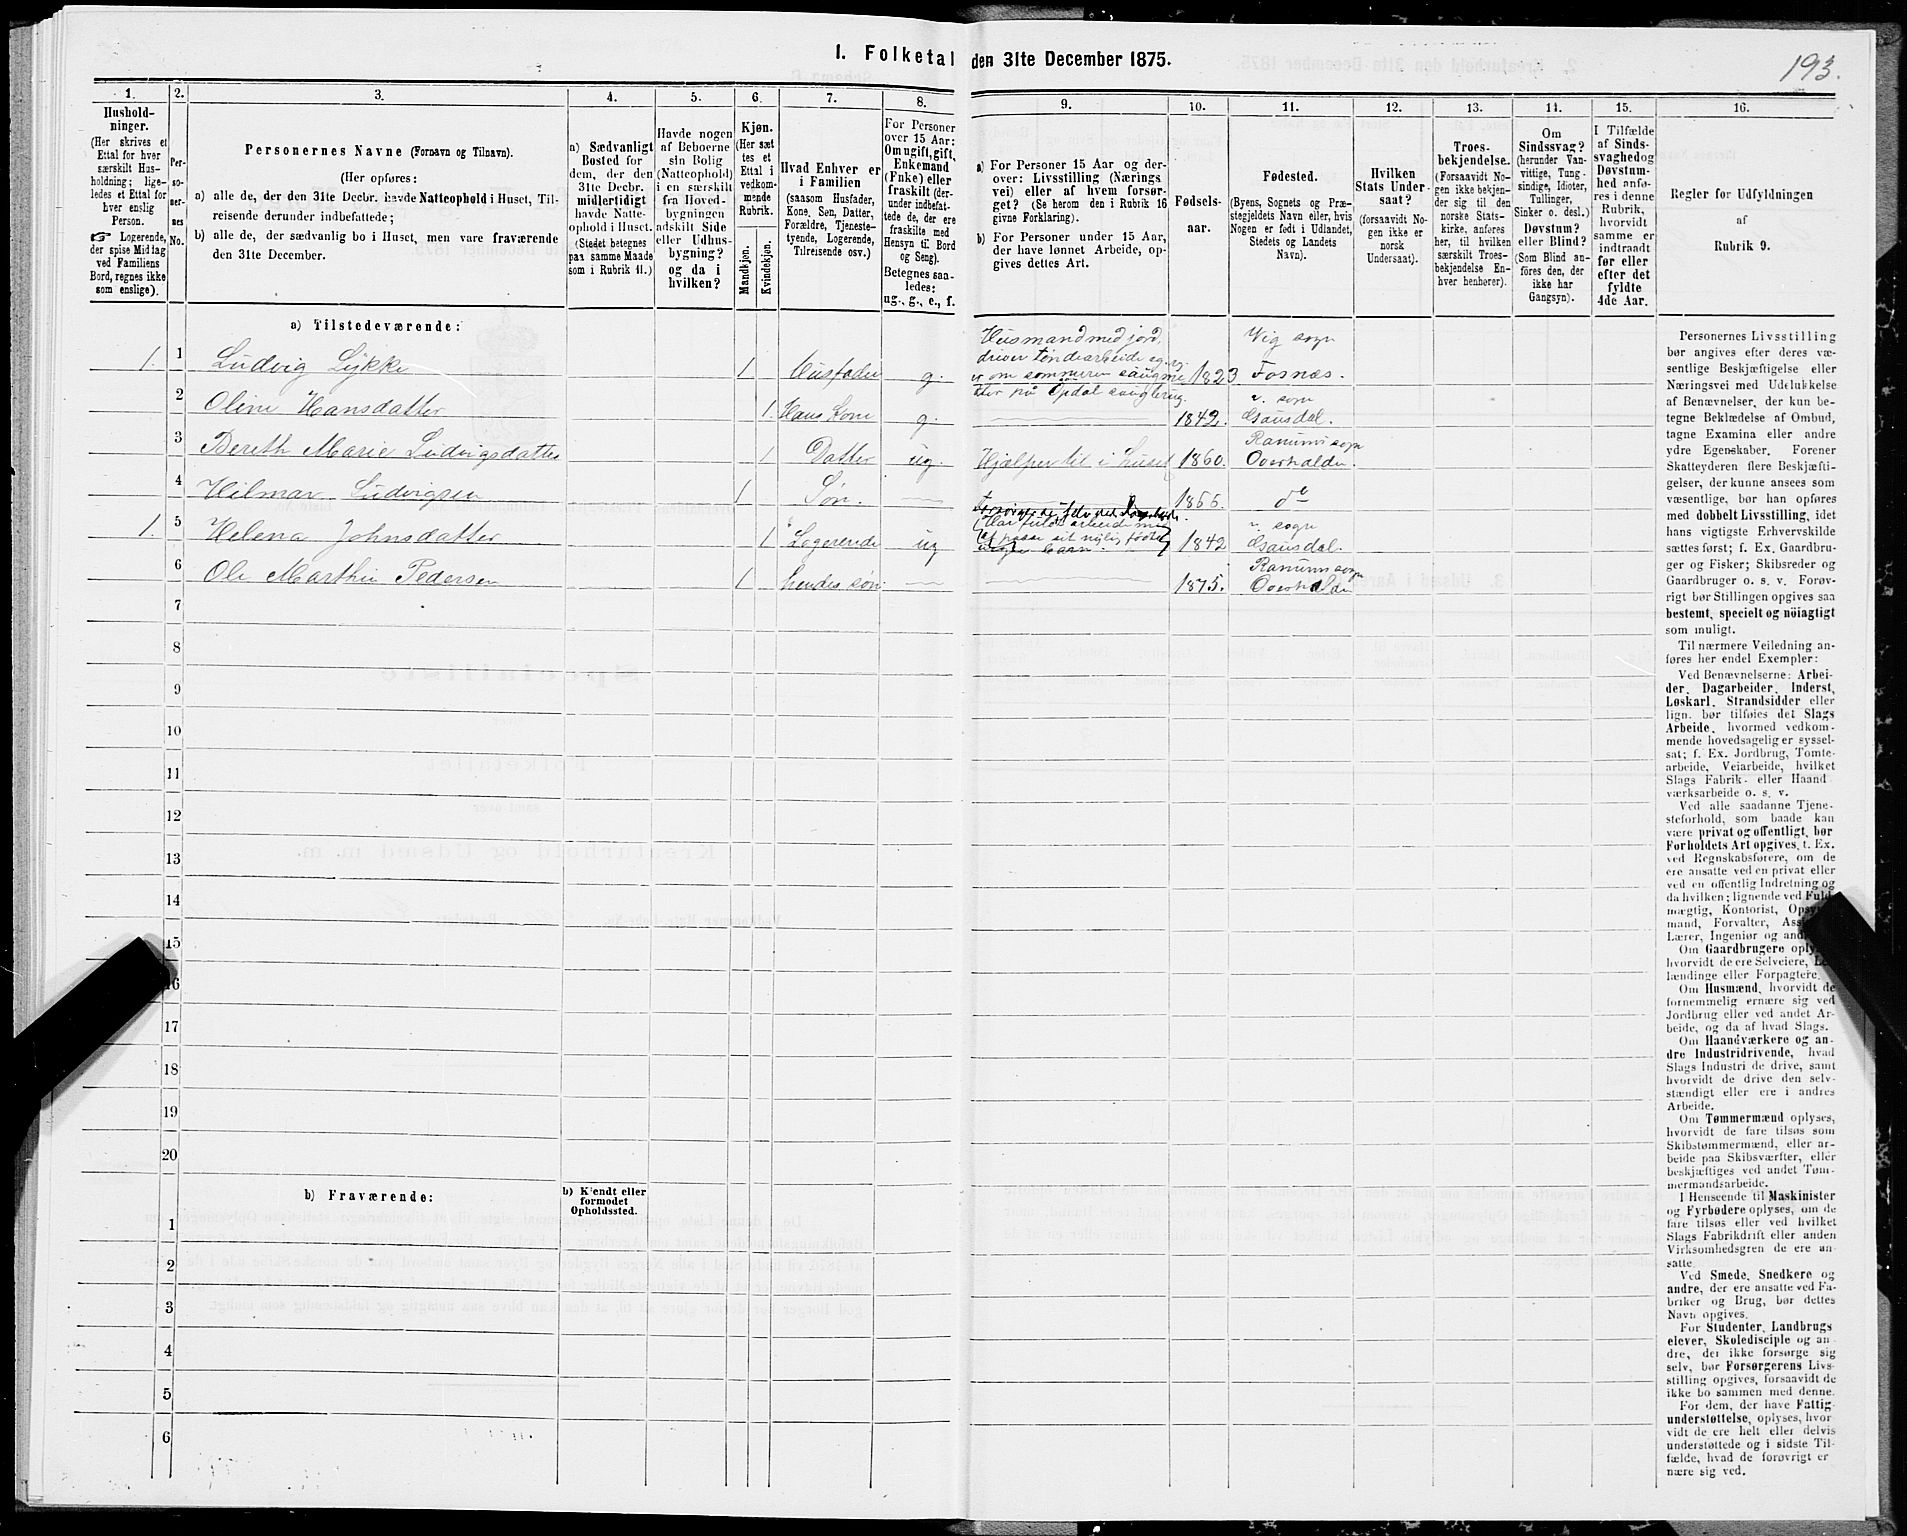 I. Folketal den 31te December 1875.
193.
1. 2. 3. 4. 5. 6. 7. 8. 9. 10. 11. 12. 13. 14. 15. 16.
Hushold-
ninger.
(Her skrives et
Ettal for hver
særskilt Hus-
holdning; lige-
ledes et Ettal for
hver enslig
Person.
☞ Logerende,
der spise Middag
ved Familiens
Bord, regnes ikke
som enslige).
Per-
so-
ner-
nes
No.
Personernes Navne (Fornavn og Tilnavn).
(Her opføres:
a) alle de, der den 31te Decbr. havde Natteophold i Huset, Til-
reisende derunder indbefattede;
b) alle de, der sædvanlig bo i Huset, men vare fraværende
den 31te December.
a) Sædvanligt
Bosted for
dem, der den
31te Decbr.
midlertidigt
havde Natte-
ophold i Huset.
(Stedet betegnes
paa samme Maade
som i Rubrik 11.)
Havde nogen
af Beboerne
sin Bolig
(Natteophold)
i en særskilt
fra Hoved-
bygningen
adskilt Side
eller Udhus-
bygning?
og da i
hvilken?
Kjøn.
(Her sæt
tes et
Ettal i
vedkom-
mende
Rubrik.
Mandkjøn.
Kvindekjøn.
Hvad Enhver er
i Familien
(saasom Husfader,
Kone, Søn, Datter,
Forældre, Tjeneste-
tyende, Logerende,
Tilreisende osv.)
For Personer
over 15 Aar:
Om ugift, gift,
Enkemand
(Enke) eller
fraskilt (der-
under indbefat-
tede de, der ere
fraskilte med
Hensyn til Bord
og Seng).
Betegnes saa-
ledes:
ug., g., e., f.
a) For Personer 15 Aar og der-
over: Livsstilling (Nærings
vei) eller af hvem forsør-
get? (Se herom den i Rubrik 16
givne Forklaring).
b) For Personer under 15 Aar,
der have lønnet Arbeide, op-
gives dettes Art.
Fødsels-
aar.
Fødested.
(Byens, Sognets og Præ-
stegjeldets Navn eller, hvis
Nogen er født i Udlandet,
Stedets og Landets
Navn).
Hvilken
Stats Under-
saat?
(forsaavidt No-
gen ikke er
norsk
Undersaat).
Troes-
bekjendelse.
(Forsaavidt No-
gen ikke bekjen-
der sig til den
norske Stats-
kirke, anføres
her, til hvilken
særskilt Troes-
bekjendelse En-
hver henhører).
Om
Sindssvag?
(herunder Van-
vittige, Tung-
sindige, Idioter,
Tullinger,
Sinker o. desl.)
Døvstum?
eller Blind?
(Som Blind an-
føres den, der
ikke har
Gangsyn).
I Tilfælde
af Sinds-
svaghed og
Døvstum-
hed anfø-
res i denne
Rubrik,
hvorvidt
samme er
indtraadt
før eller
efter det
fyldte
4de Aar.
Regler før Udfyldningen
af
Rubrik 9.
a) Tilstedeværende:
1. 1 Ludvig Lykke 1 Husfader g. Husmand med jord,
driver tøndearbeide og
er om sommeren
1823 Vig sogn
Fosnæs.
2 Oline Hansdatter 1. Hans Kone g. 1842. v. sogn
Gausdal.
3 Bereth Marie Ludvigsdatter 1 Datter ug. Hjælper til i huset 1860. Ranum sogn
Overhalden.
4 Hilmar Ludvigsen 1 Søn. 1866. do
1. 5 Helena Johnsdatter 1 Logerende ug 1842 v. sogn
Gausdal.
6 Ole Marthin Pedersen 1 hendes søn. 1875. Ranum sogn
Overhalden
7
8
9
10
11
12
13
14
15
16
17
18
19
20
b) Fraværende:
b) Kjendt eller
formodet
Opholdssted.
1
2
3
4
5
6
Personernes Livsstilling
bør angives efter deres væ-
sentlige Beskjæftigelse eller
Næringsvei med Udelukkelse
af Benævnelser, der kun be-
tegne Beklædelse af Ombud,
tagne Examina eller andre
ydre Egenskaber. Forener
Skatteyderen flere Beskjæfti-
gelser, der kunne ansees som
væsentlige, bør han opføres
med dobbelt Livsstilling, idet
hans vigtigste Erhvervskilde
sættes først; f. Ex. Gaardbru-
ger og Fisker; Skibsreder og
Gaardbruger o. s. v. Forøv-
rigt bør Stillingen opgives saa
bestemt, specielt og nöiagtigt
som muligt.
Til nærmere Veiledning an-
føres her endel Exempler:
Ved Benævnelserne: Arbei-
der, Dagarbeider, Inderst,
Løskarl, Strandsidder eller
lign. bør tilføies det Slags
Arbeide, hvormed vedkom-
mende hovedsagelig er syssel-
sat; f. Ex. Jordbrug, Tomte-
arbeide, Veiarbeide, hvilket
Slags Fabrik- eller Haand
værksarbeide o. s. v.
Ved alle saadanne Tjene-
steforhold, som baade kan
være privat og offentligt, bør
Forholdets Art opgives, f. Ex.
ved Regnskabsførere, om de
ere ansatte ved en privat eller
ved en offentlig Indretning og
da hvilken; lignende ved Fuld-
mægtig, Kontorist,
mand, Forvalter,
Lærer, Ingeniør og
Om Gaardbrugere
hvorvidt de ere Selveiere,
lændinge eller Forpagtere.
Om Husmænd, hvorvidt de
fornemmelig ernære sig ved
Jordbrug eller ved andet Ar-
beide, og da af hvad Slags.
Om Haandværkere og an-
dre Industridrivende, hvad
Slags Industri de drive, samt
hvorvidt de drive den selv-
stændigt eller ere i andres
Arbeide.
Om Tømmermænd oplyses,
hvorvidt de fare tilsøs som
Skibstømmermænd, eller ar-
beide paa Skibsværfter, eller
beskjæftiges ved andet Tøm-
mermandsarbeide.
I Henseende til Maskinister
og Fyrbødere oplyses, om de
fare tilsøs eller ved hvilket
Slags Fabrikdrift eller anden
Virksomhedsgren de ere an-
satte.
Ved Smede, Snedkere og
andre, der ere ansatte ved Fa-
briker og Brug, bør dettes
Navn opgives.
For Studenter, Landbrugs
elever, Skoledisciple og an-
dre, der ikke forsørge sig
selv, bør Forsørgerens Livs-
stilling opgives, forsaavidt de
ikke bo sammen med denne.
For dem, der have Fattig-
understøttelse, oplyses, hvor
vidt de ere helt eller delvis
understøttede og i sidste Til-
fælde, hvad de forøvrigt er
nære sig ved.